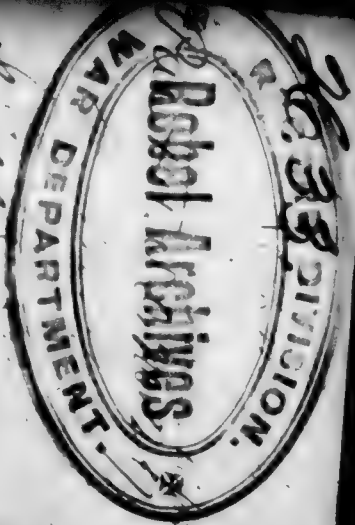 R DIVISION.
Rebel Archives
WAR DEPARTMENT.
33